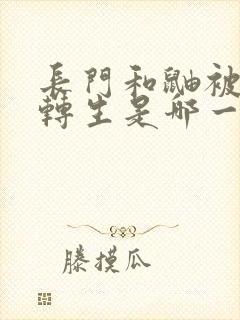 長門和鼬被
轉生是哪一
滕摸瓜